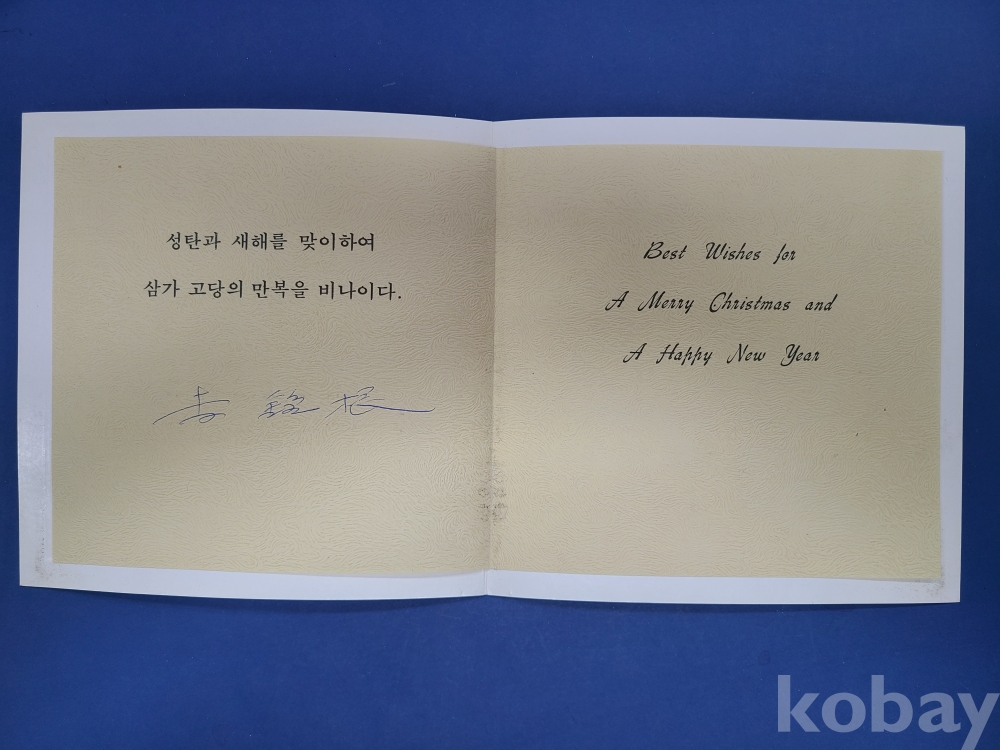 성탄과 새해를 맞이하여
삼가 고당의 만복을 비나이다.
李 銘 根
Best Wishes for
A Merry Christmas and
A Happy New Year
kobay